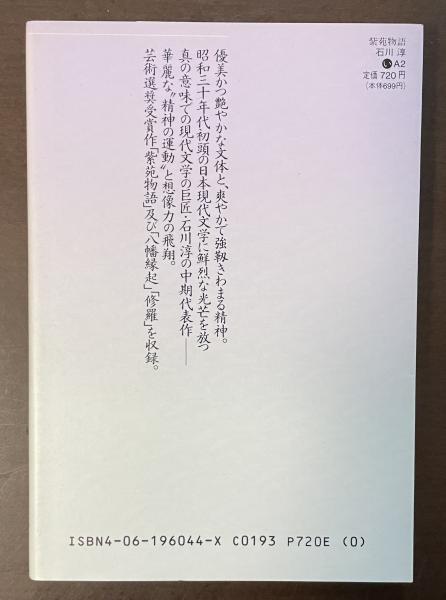 紫苑物語
石川 淳
いA2
定価720円
(本体699円)
優美かつ艶やかな文体と、爽やかで強靱きわまる精神。
昭和三十年代初頭の日本現代文学に鮮烈な光芒を放つ
真の意味での現代文学の巨匠・石川淳の中期代表作――
華麗な〝精神の運動〟と想像力の飛翔。
芸術選奨受賞作「紫苑物語」及び「八幡縁起」「修羅」を収録。
ISBN4-06-196044-X C0193 P720E (0)